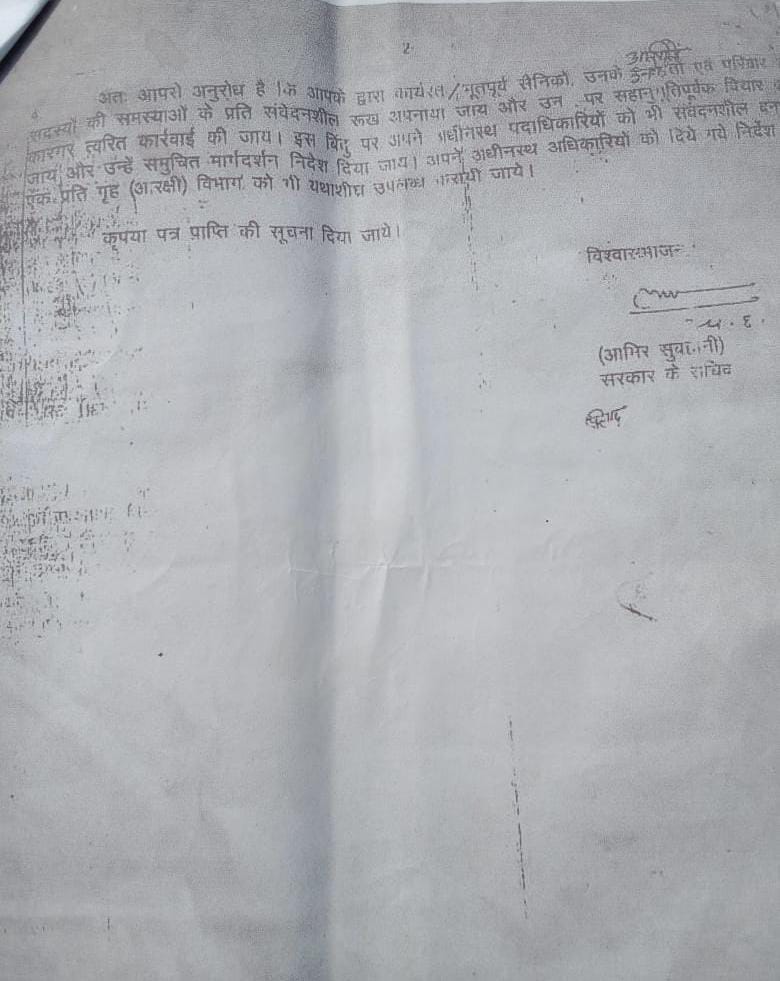 2
आश्रितों
अतः आपसे अनुरोध है कि आपके द्वारा कार्यरत/भूतपूर्व सैनिकों, उनके एवं परिवार
सदस्यों की समस्याओं के प्रति संवेदनशील रूख अपनाया जाय और उन पर सहानुभूतिपूर्वक विचार
कारगर त्वरित कार्रवाई की जाय। इस बिंदु पर अपने अधीनस्थ पदाधिकारियों को भी संवेदनशील बना
जाय और उन्हें समुचित मार्गदर्शन निदेश दिया जाय। अपने अधीनस्थ अधिकारियों को दिये गये निदेश
एक प्रति गृह (आरक्षी) विभाग को भी यथाशीघ्र उपलब्ध करायी जाये।
कृपया पत्र प्राप्ति की सूचना दिया जाये।
विश्वासभाजन
(आमिर सुबहानी)
सरकार के सचिव